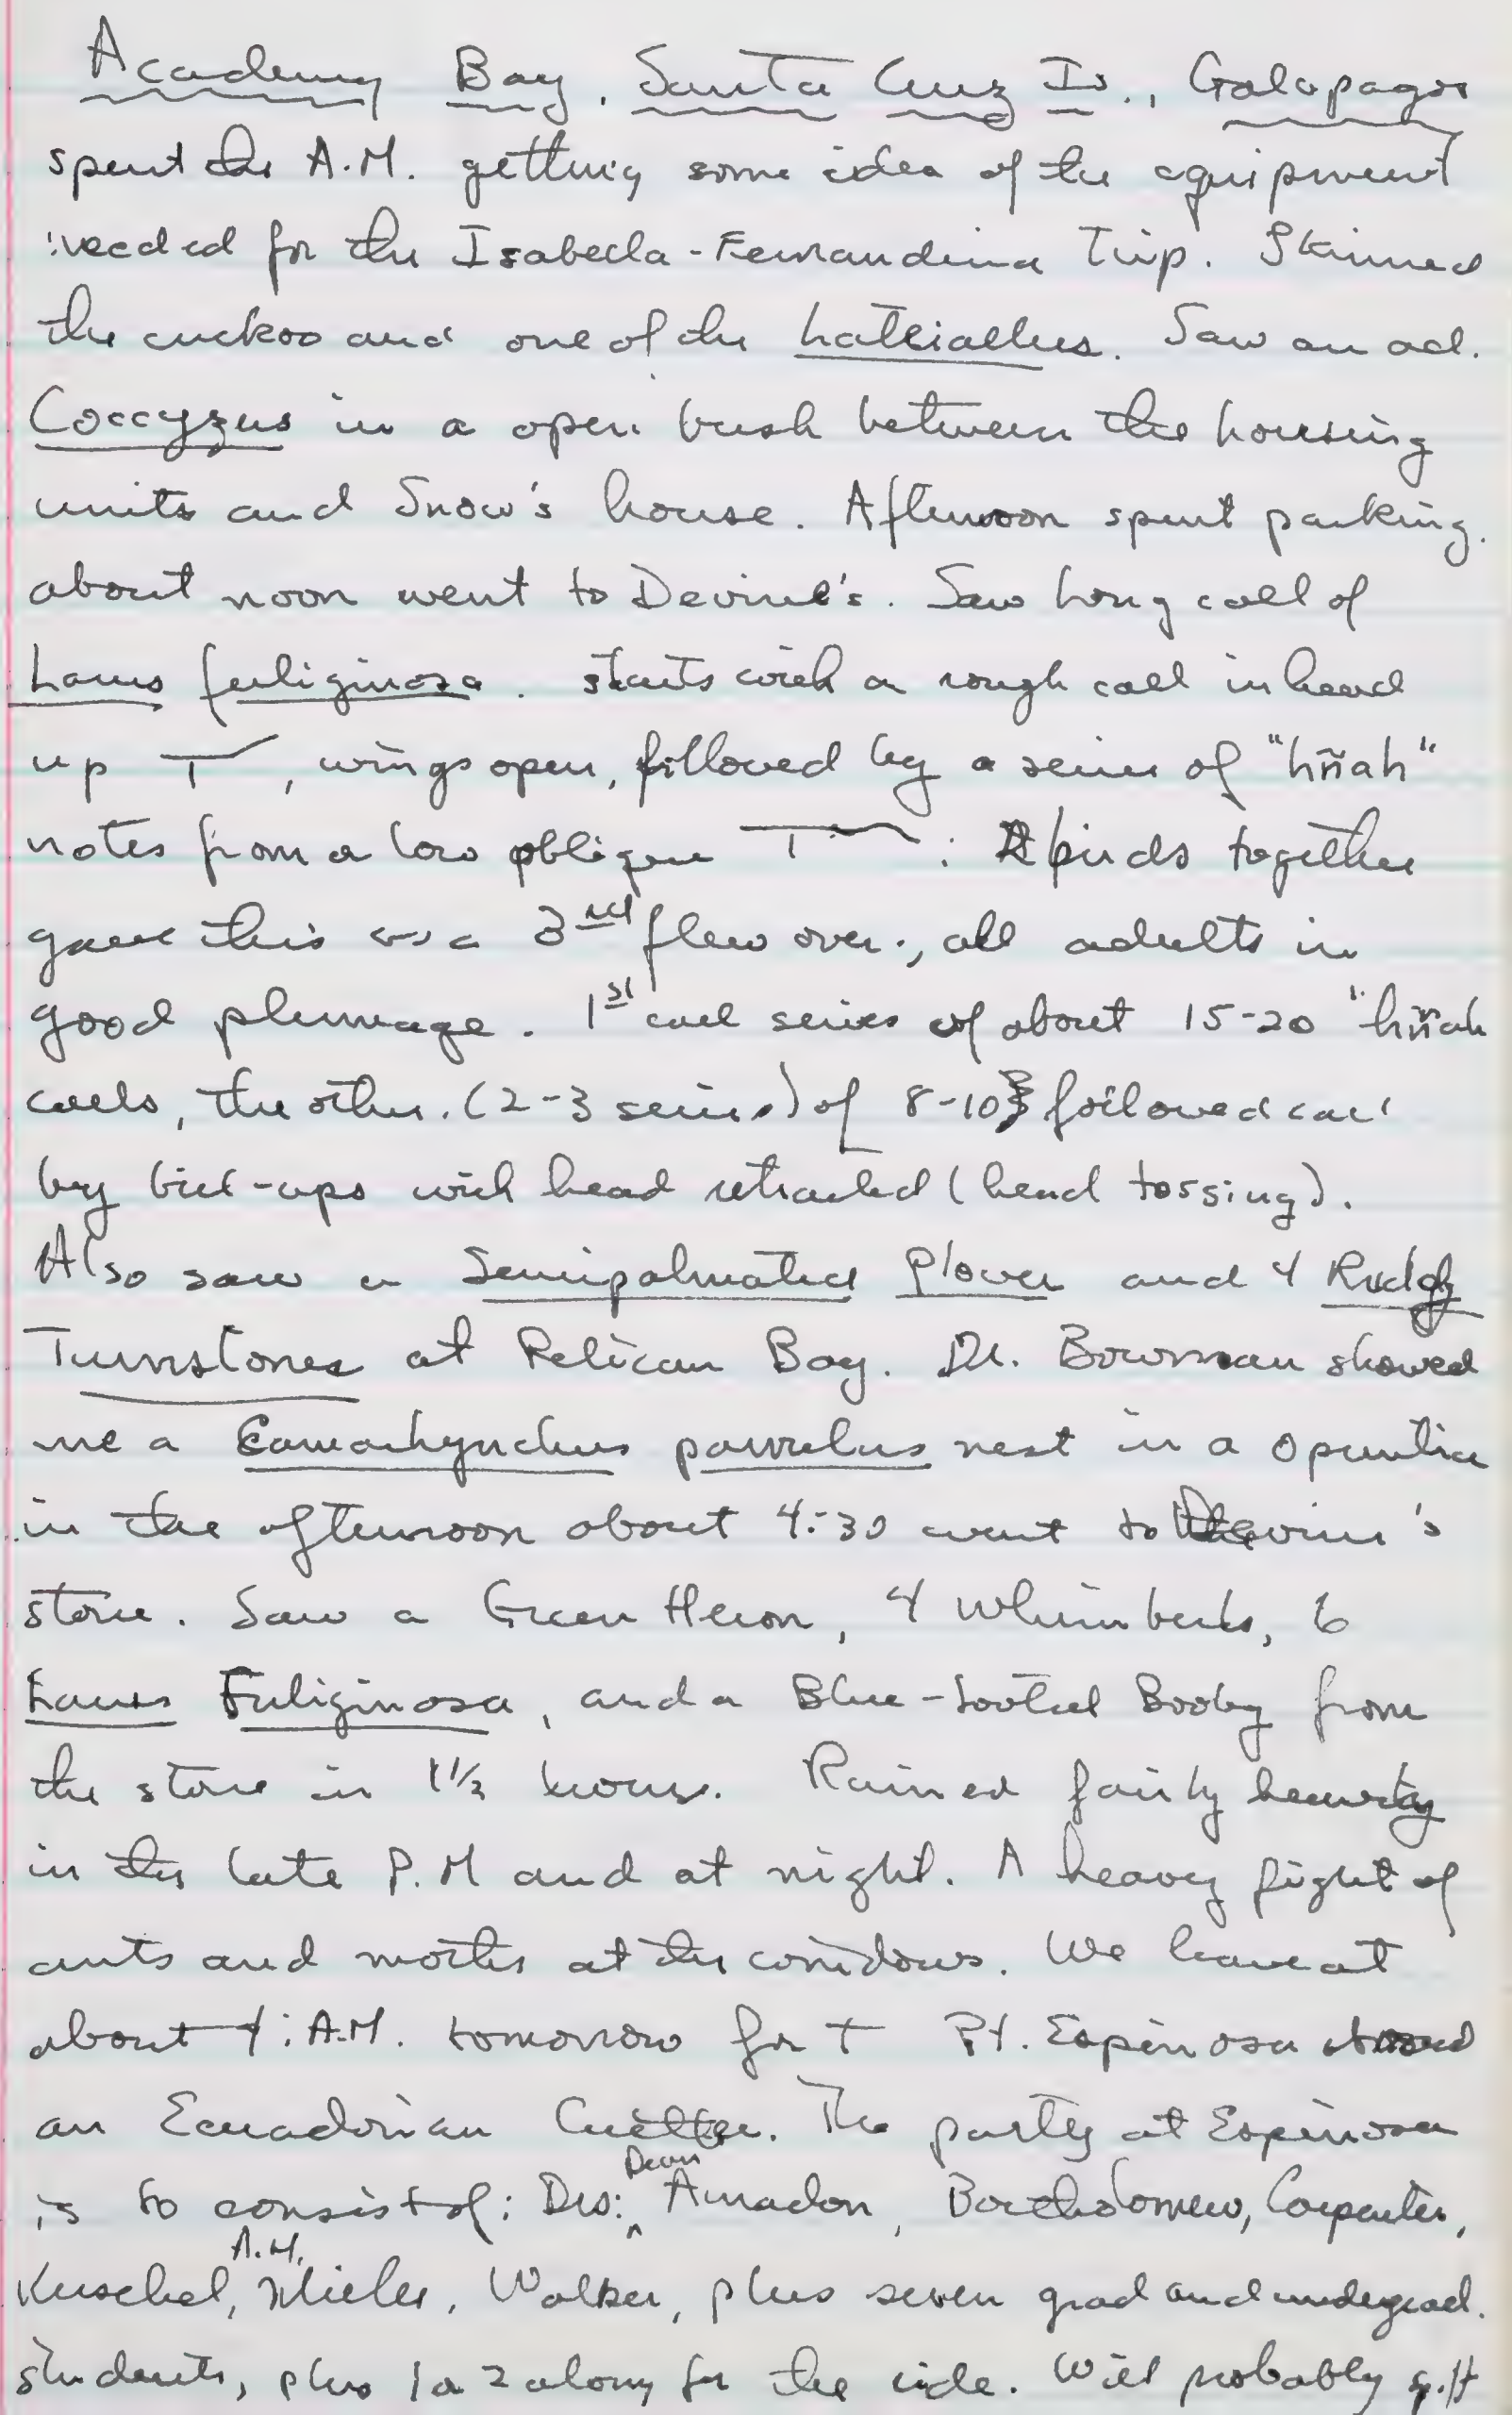 Academy Bay, Santa Cruz Is., Galapagos
spent the A.M. getting some idea of the equipment
needed for the Isabella-Fernandina Trip. Skinned
the cuckoo and one of the Laterallus. Saw an ad.
Coccyzus in a open bush between the housing
units and Snow's house. Afternoon spent packing.
about noon went to Devine's. Saw Long call of
Larus fuliginosa. starts with a rough call in head
up, wings open, followed by a series of "hñah"
notes from a low oblique : 2 birds together
gave this as a 3rd flew over., all adults in
good plumage. 1st call series of about 15-20 "hñah
calls, the other. (2-3 series) of 8-10 followed
by bill-ups with head retracted (head tossing).
Also saw a Semipalmated Plover and 4 Ruddy
Turnstones at Pelican Bay. Dr. Bowman showed
me a Camarhynchus parvulus nest in a opuntia
in the afternoon about 4:30 went to Devine's
store. Saw a Green Heron, 4 Whimbrels, 6
Larus Fuliginosa, and a Blue-footed Booby from
the store in 1½ hours. Rained fairly heavily
in the late P.M and at night. A heavy flight of
ants and moths at the windows. We leave at
about 4: A.M. tomorrow for Pt. Espinosa aboard
an Ecuadorian Cutter. The party at Espinosa
is to consist of: Drs: Dean Amadon, Bartholomew, Carpenter,
Kuschel, A.H. Miller, Walker, plus seven grad and undergrad.
students, plus 1 or 2 along for the ride. Will probably split